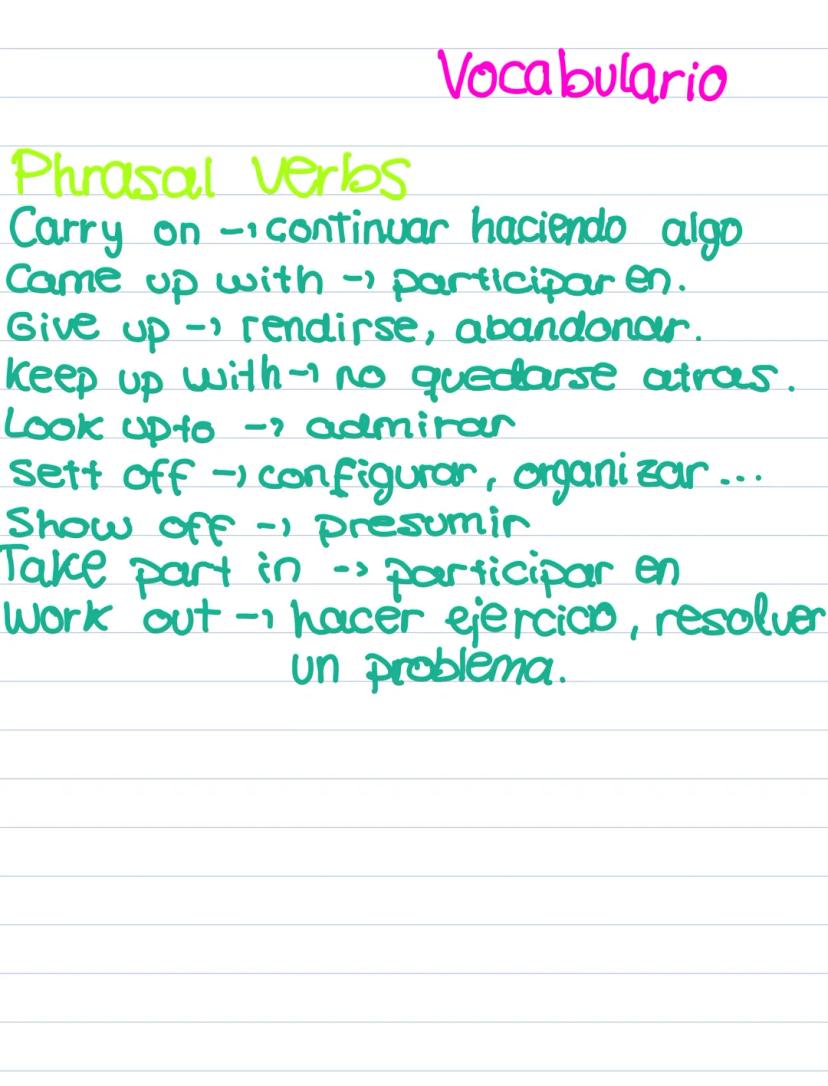 Vocabulario
Phrasal verbs
Carry on → continuar haciendo algo
Came up with → participar en.
Give up → rendirse, abandonar.
Keep up with → no quedarse atras.
Look up to → admirar
Sett off → configurar, organizar...
Show off → presumir
Take part in → participar en
Work out → hacer ejercicio, resolver
un problema.